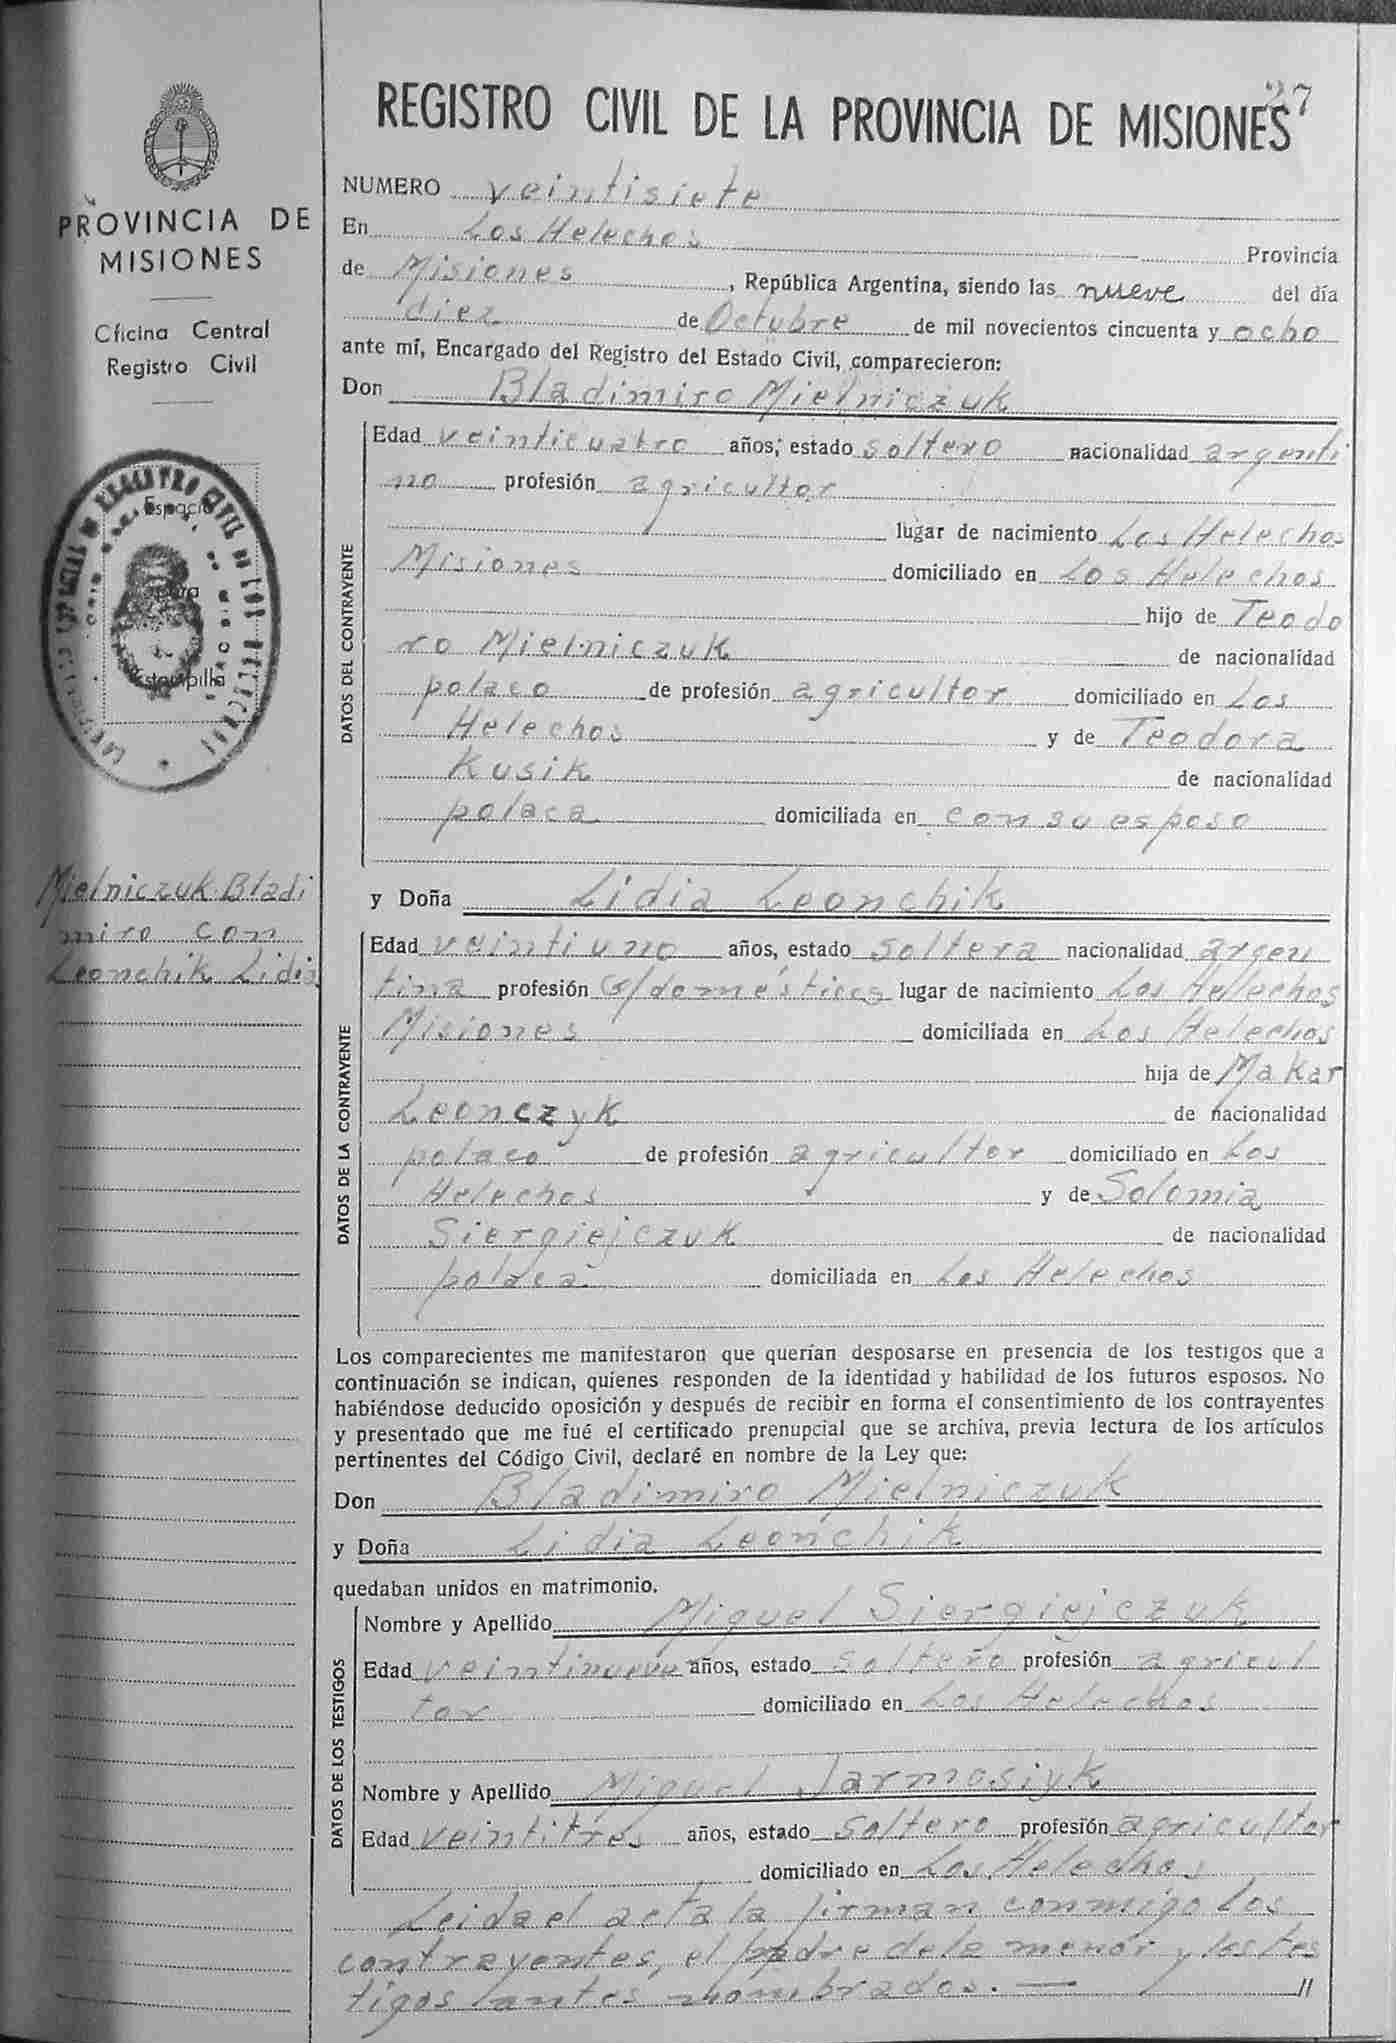 27
REGISTRO CIVIL DE LA PROVINCIA DE MISIONES
PROVINCIA DE
MISIONES
Oficina Central
Registro Civil
Espacio
para
Estampilla
Mielniczuk Bladi
miro con
Leonchik Lidia
NUMERO veintisiete
En Los Helechos Provincia
de Misiones, República Argentina, siendo las nueve del día
diez de Octubre de mil novecientos cincuenta y ocho
ante mí, Encargado del Registro del Estado Civil, comparecieron:
Don Bladimiro Mielniczuk
DATOS DEL CONTRAYENTE
Edad veinticuatro años, estado soltero nacionalidad argenti
no profesión agricultor
lugar de nacimiento Los Helechos
Misiones domiciliado en Los Helechos
hijo de Teodo
ro Mielniczuk de nacionalidad
polaco de profesión agricultor domiciliado en Los
Helechos y de Teodora
Kusik de nacionalidad
polaca domiciliada en con su esposo
y Doña Lidia Leonchik
DATOS DE LA CONTRAYENTE
Edad veintiuno años, estado soltera nacionalidad argen
tina profesión Q/domésticos lugar de nacimiento Los Helechos
Misiones domiciliada en Los Helechos
hija de Makar
Leonczyk de nacionalidad
polaco de profesión agricultor domiciliado en Los
Helechos y de Solomia
Siergiejczuk de nacionalidad
polaca domiciliada en Los Helechos
Los comparecientes me manifestaron que querían desposarse en presencia de los testigos que a
continuación se indican, quienes responden de la identidad y habilidad de los futuros esposos. No
habiéndose deducido oposición y después de recibir en forma el consentimiento de los contrayentes
y presentado que me fué el certificado prenupcial que se archiva, previa lectura de los artículos
pertinentes del Código Civil, declaré en nombre de la Ley que:
Don Bladimiro Mielniczuk
y Doña Lidia Leonchik
quedaban unidos en matrimonio.
DATOS DE LOS TESTIGOS
Nombre y Apellido Miguel Siergiejczuk
Edad veintinueve años, estado soltero profesión agricul
tor domiciliado en Los Helechos
Nombre y Apellido Miguel Jarmosiyk
Edad veintitrés años, estado soltero profesión agricultor
domiciliado en Los Helechos
Leida el acta la firman conmigo los
contrayentes, el padre de la menor y los tes
tigos antes nombrados. — //